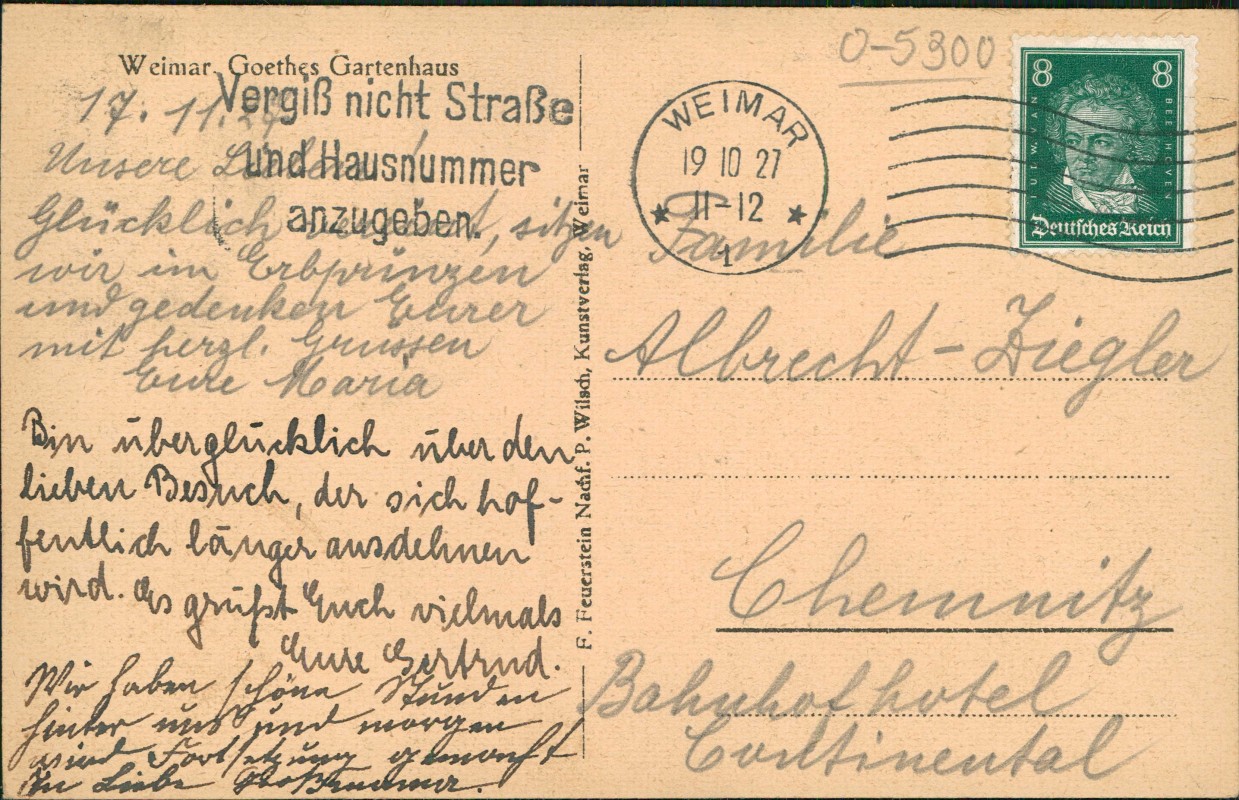 Weimar, Goethes Gartenhaus
17. 11. 27
Vergiß nicht Straße
und Hausnummer
anzugeben.
Unsere Lieben!
Glücklich vereint, sitzen
wir im Erbprinzen
und gedenken Eurer
mit herzl. Grüssen
Eure Maria
Bin überglücklich über den
lieben Besuch, der sich hof-
fentlich länger ausdehnen
wird. Es grüßt Euch vielmals
Eure Gertrud.
Wir haben schöne Stunden
hinter uns und morgen
wird Fortsetzung gemacht
In Liebe Großmama.
F. Feuerstein Nachf. P. Wilsch, Kunstverlag, Weimar
O-5300
WEIMAR
19 10 27
11-12
1
8 8
UIT.W.VAN BEETHOVEN
Deutsches Reich
Familie
Albrecht-Ziegler
Chemnitz
Bahnhofhotel
Continental